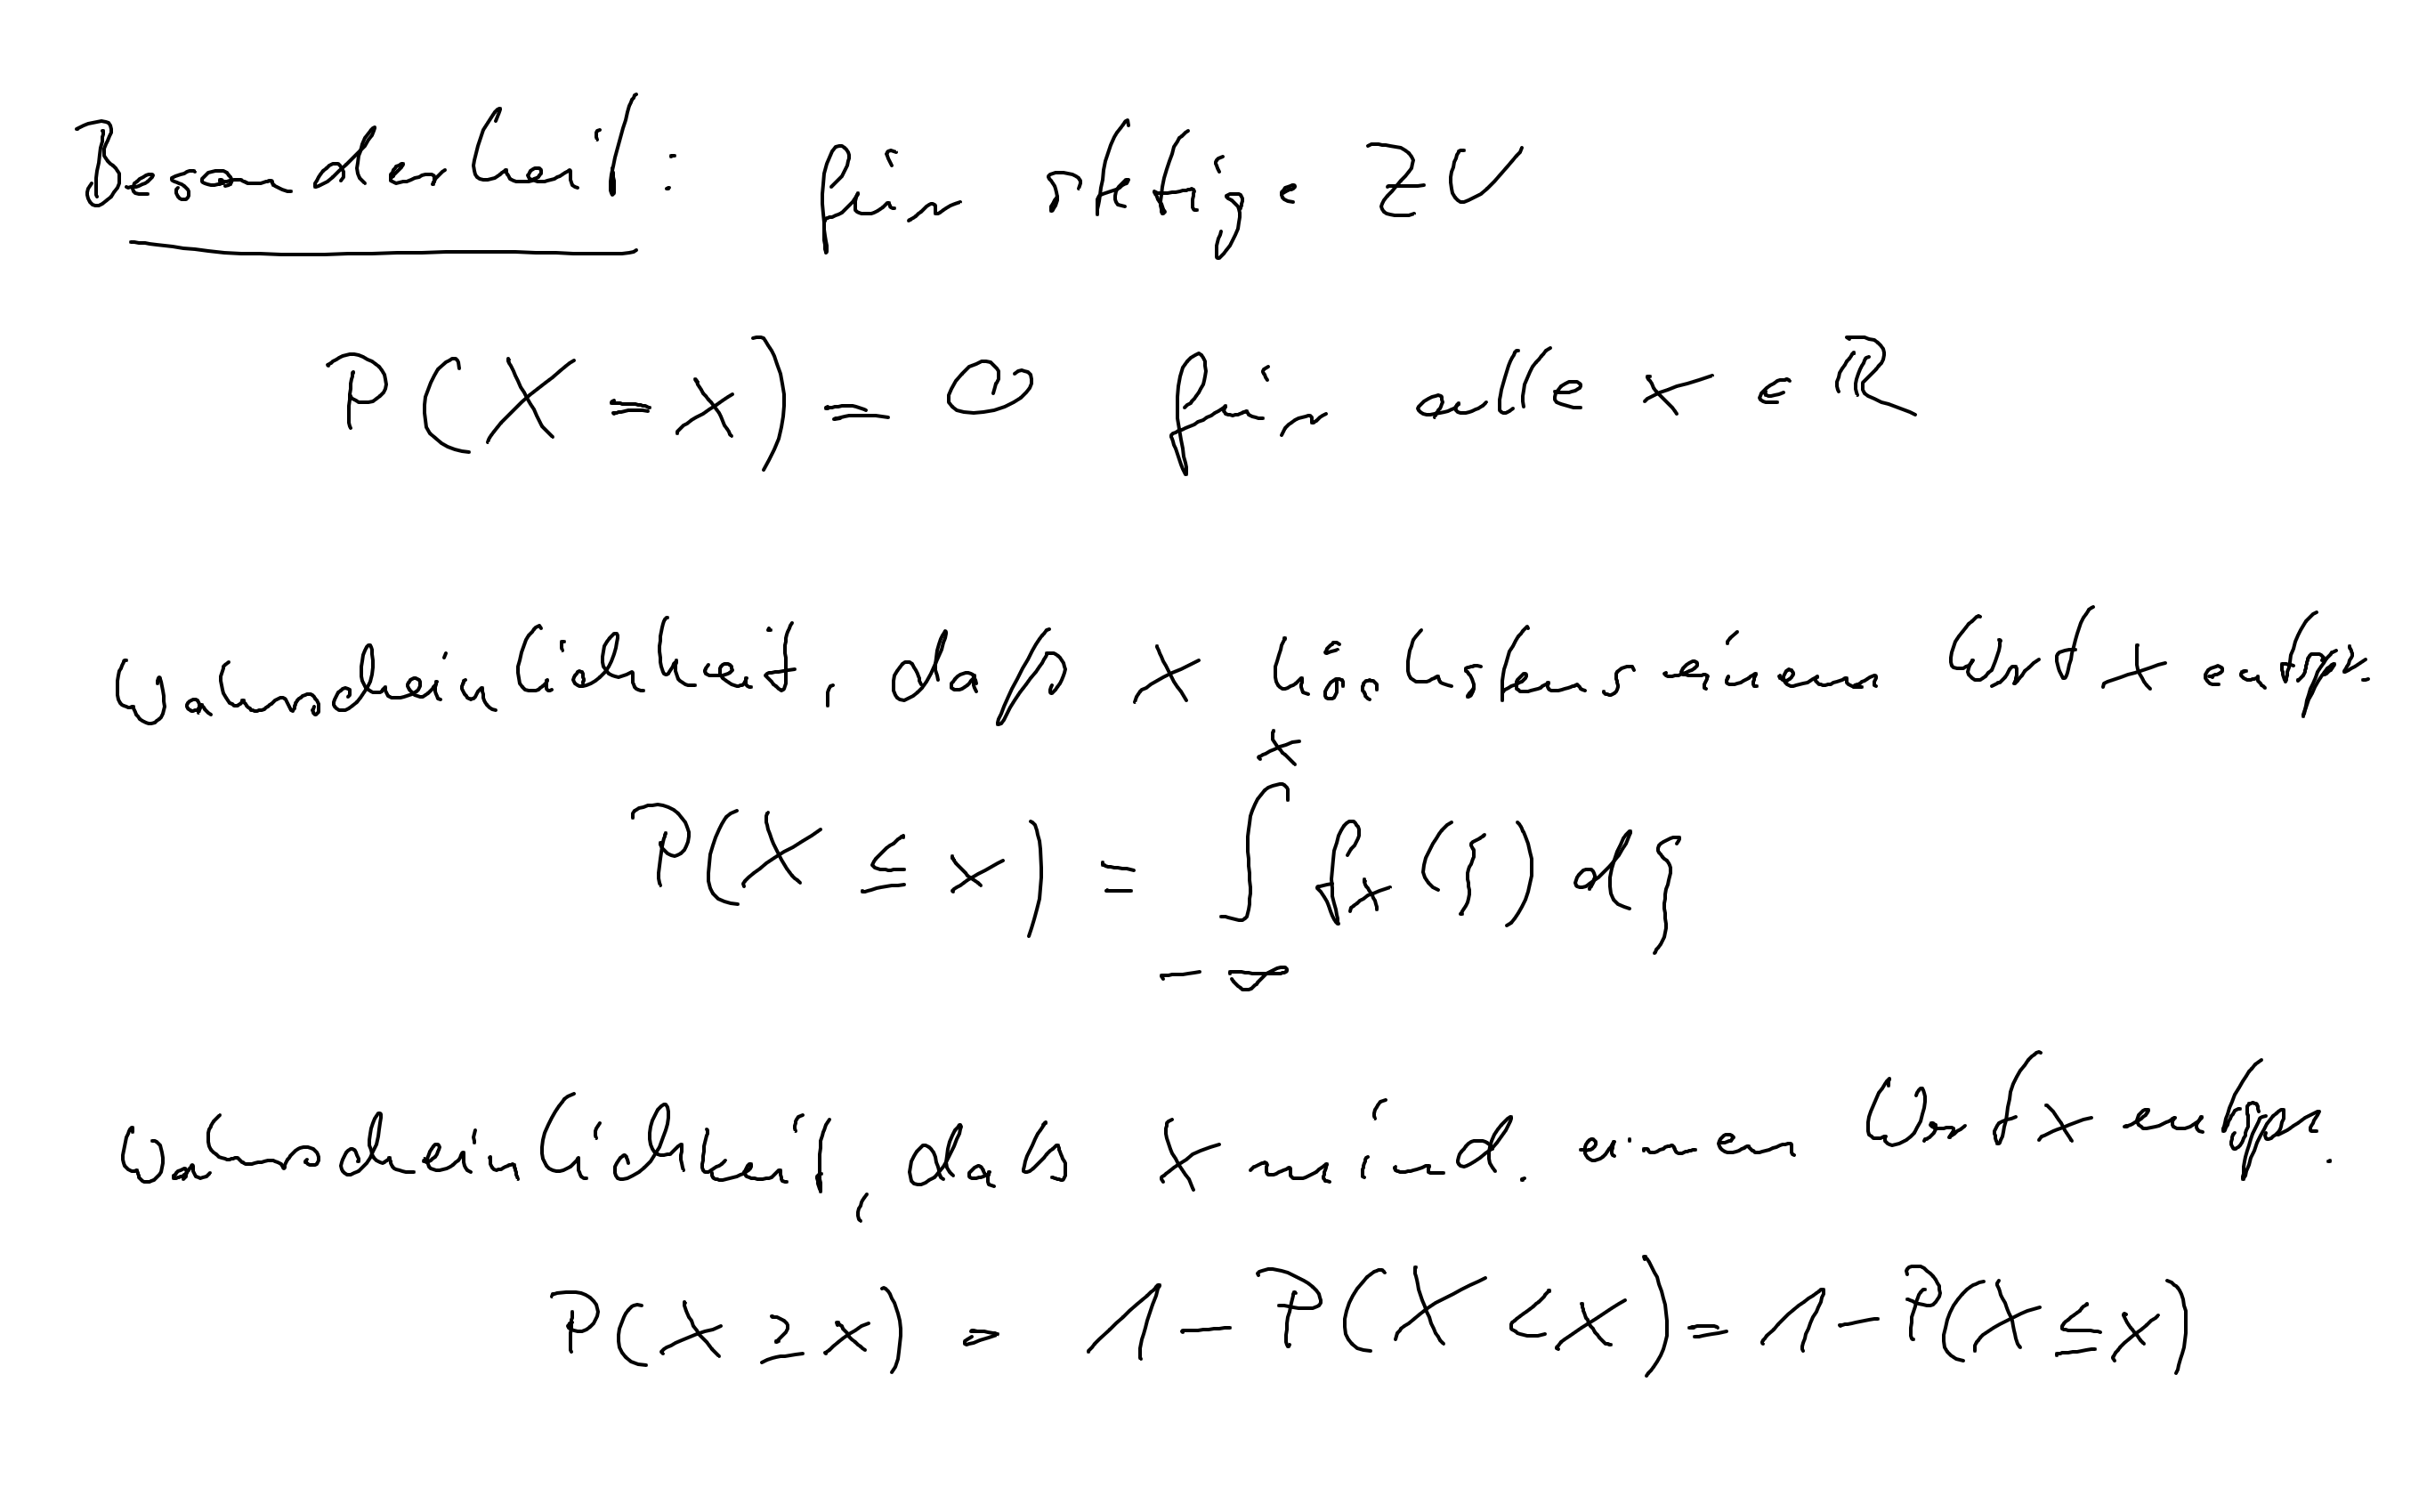 Besonderheit: für stetige ZV
P(X = x) = 0 für alle x ∈ ℝ
Wahrscheinlichkeit, daß X höchstens einen Wert x entspr.
P(X ≤ x) = ∫_{-∞}^{x} f_x(ξ) dξ
Wahrscheinlichkeit, daß X mind. einen Wert x entspr.
P(X ≥ x) = 1 - P(X < x) = 1 - P(X ≤ x)